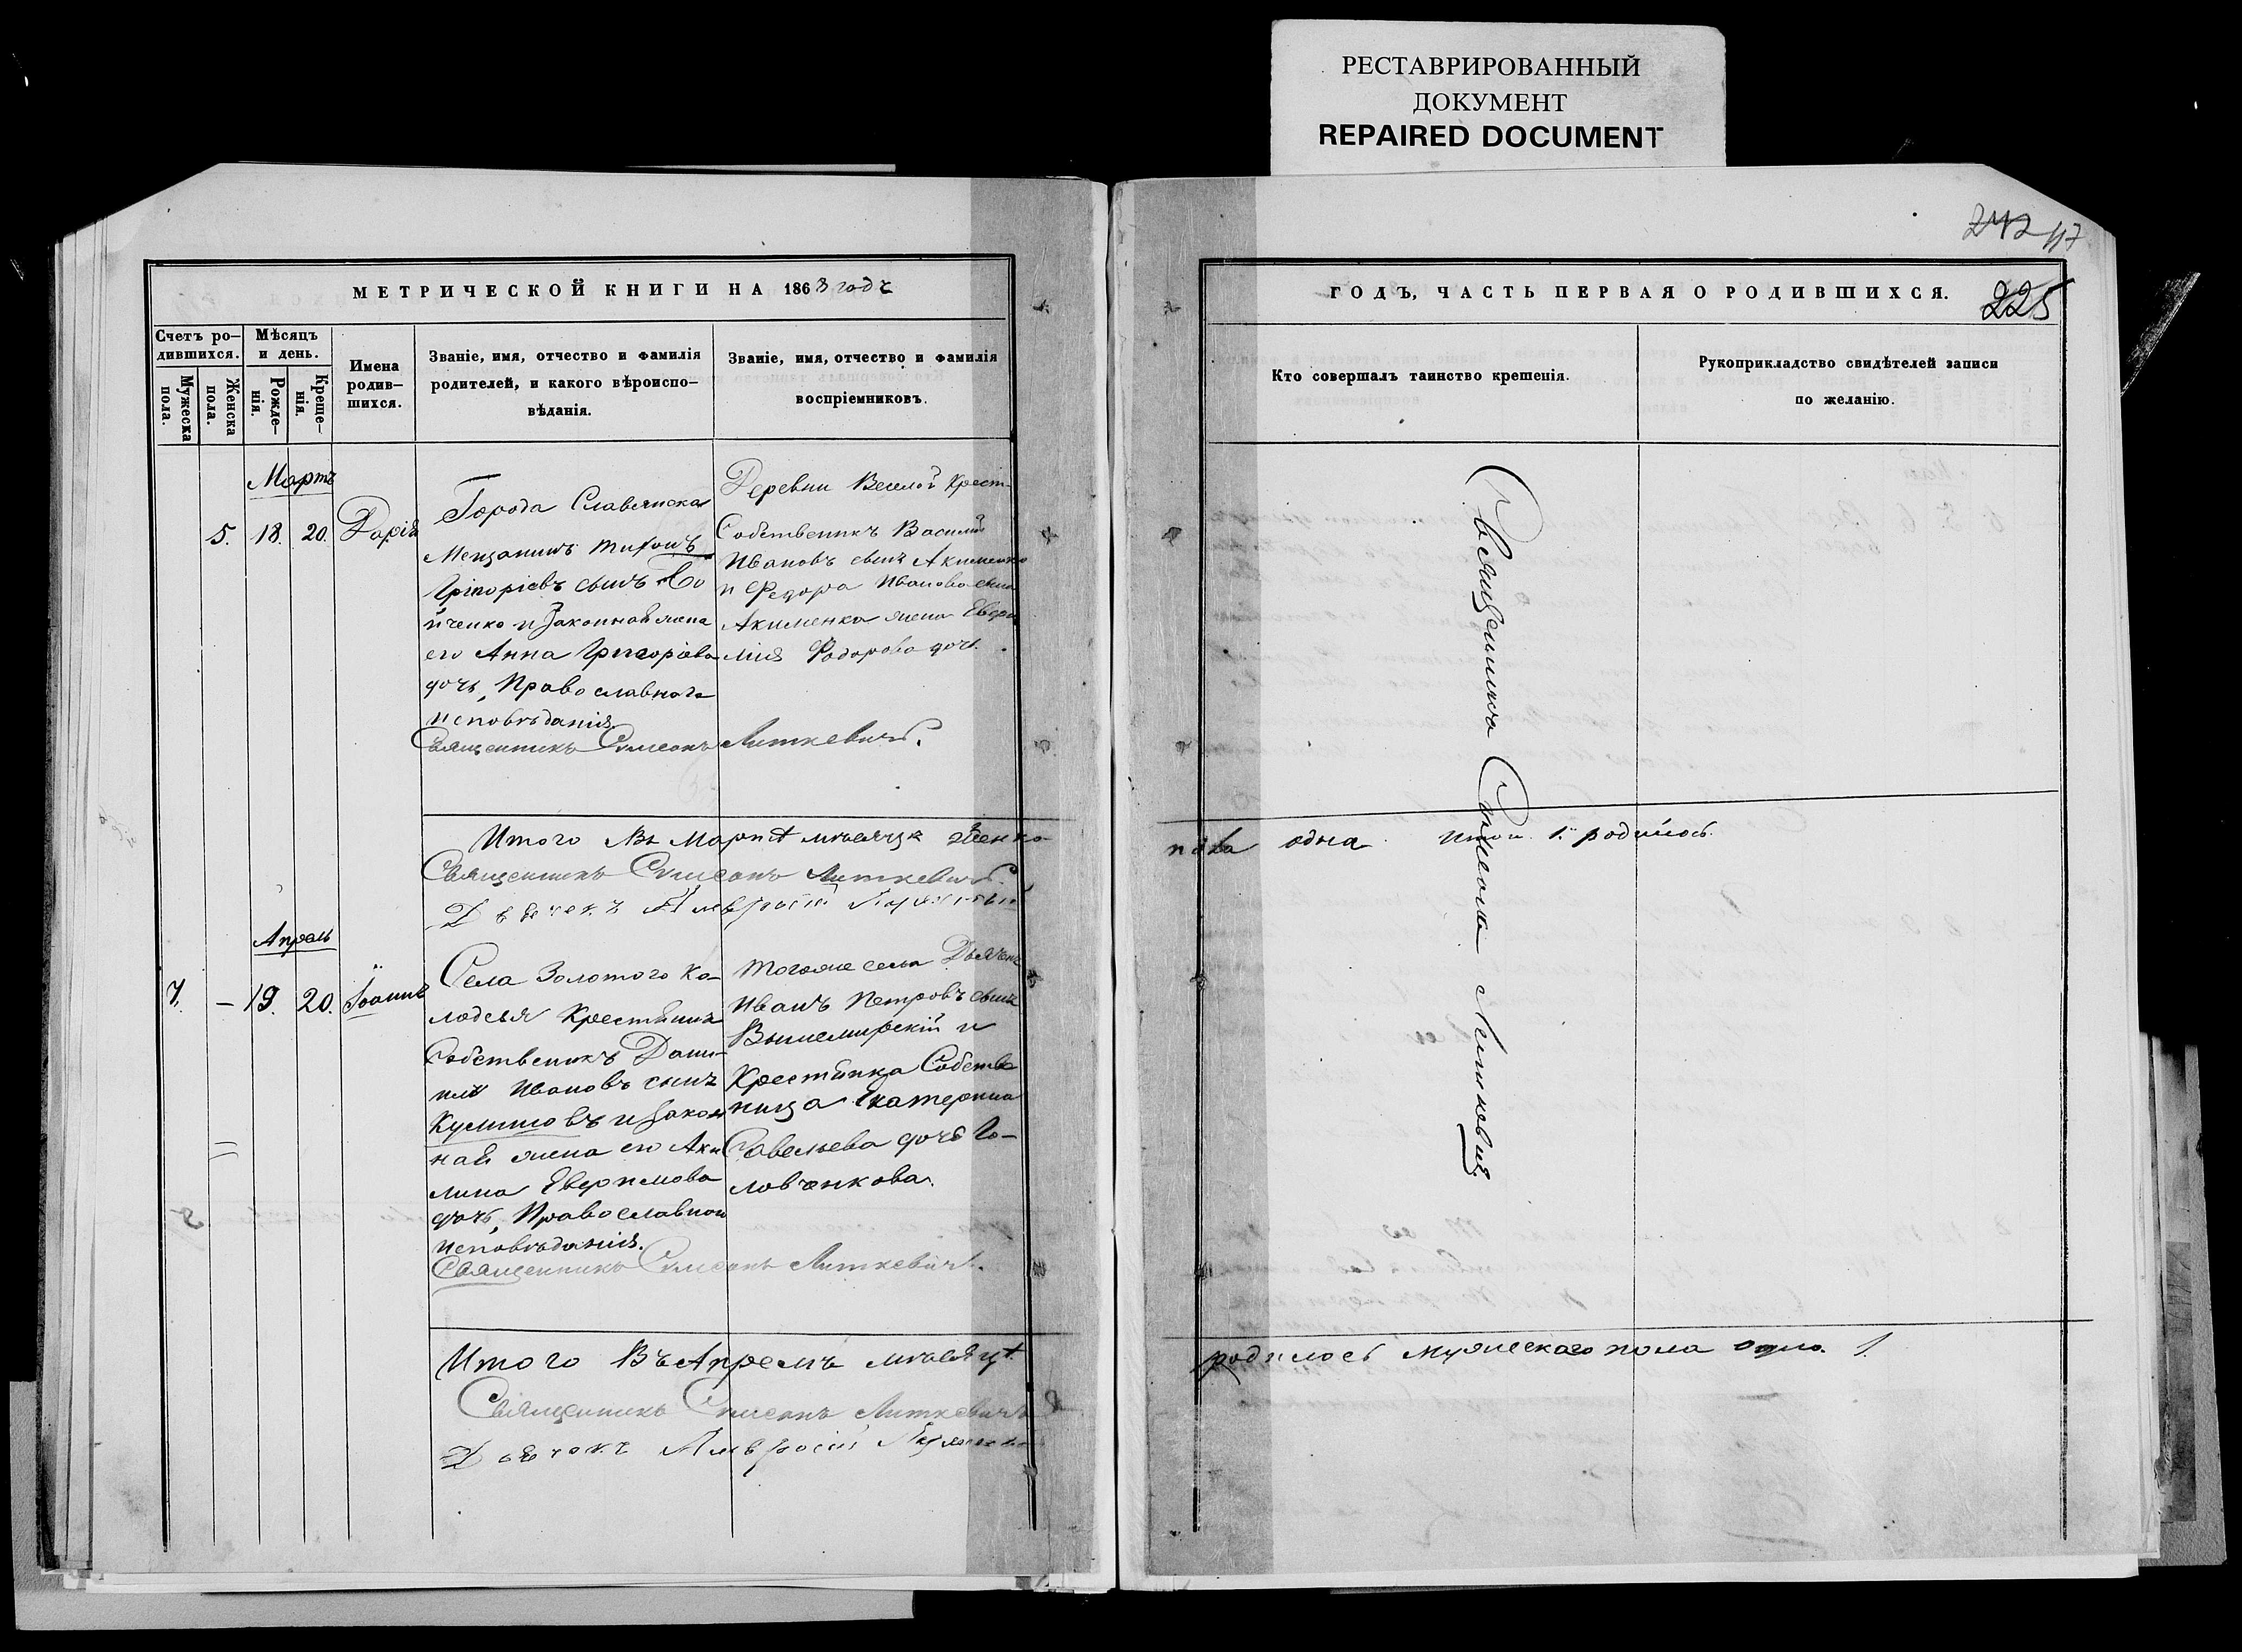 РЕСТАВРИРОВАННЫЙ
ДОКУМЕНТ
REPAIRED DOCUMENT
242 117
МЕТРИЧЕСКОЙ КНИГИ НА 1868 годъ
Счетъ ро-
дившихся.
Мужеска
пола.
Женска
пола.
Мѣсяцъ
и день.
Рожде-
нія.
Креще-
нія.
Имена
родив-
шихся.
Званіе, имя, отчество и фамилія
родителей, и какого вѣроиспо-
вѣданія.
Званіе, имя, отчество и фамилія
воспріемниковъ.
Мартъ
5. 18. 20. Дарія
Города Славянска
Мещанинъ Тихонъ
Григоріевъ сынъ
йченко и законная жена
его Анна Григоріева
дочь, Православнаго
исповѣданія.
Деревни Веселой Крест-
Собственникъ Василій
Ивановъ сынъ Акименко
и Федора Иванова сына
Акименка жена Евфи
мія Федорова дочь.
Священникъ Симеонъ Литкевичъ.
Итого Въ Мартѣ мѣсяцѣ женска
Священникъ Симеонъ Литкевичъ.
Дьячекъ Амвросій
Апрель
7. – 19. 20. Іоаннъ
Села Золотого Ко-
лодезя Крестьянинъ
Собственникъ Дани-
илъ Ивановъ сынъ
и закон
ная жена его Аки
лина Евфимова
дочь, Православнаго
исповѣданія.
Тогоже села Дьячекъ
Иванъ Петровъ сынъ
Вышемирскій и
Крестьянка Собстве
ница Екатерина
Савельева дочь Го-
ловченкова.
Священникъ Симеонъ Литкевичъ.
Итого Въ Апрелѣ мѣсяцѣ
Священникъ Симеонъ Литкевичъ
Дьячекъ Амвросій
ГОДЪ, ЧАСТЬ ПЕРВАЯ О РОДИВШИХСЯ. 225
Кто совершалъ таинство крещенія.
Рукоприкладство свидѣтелей записи
по желанію.
Священникъ Симеонъ Литкевичъ
пола одна. Итого 1. родилось.
родилось мужескаго пола одно. 1.